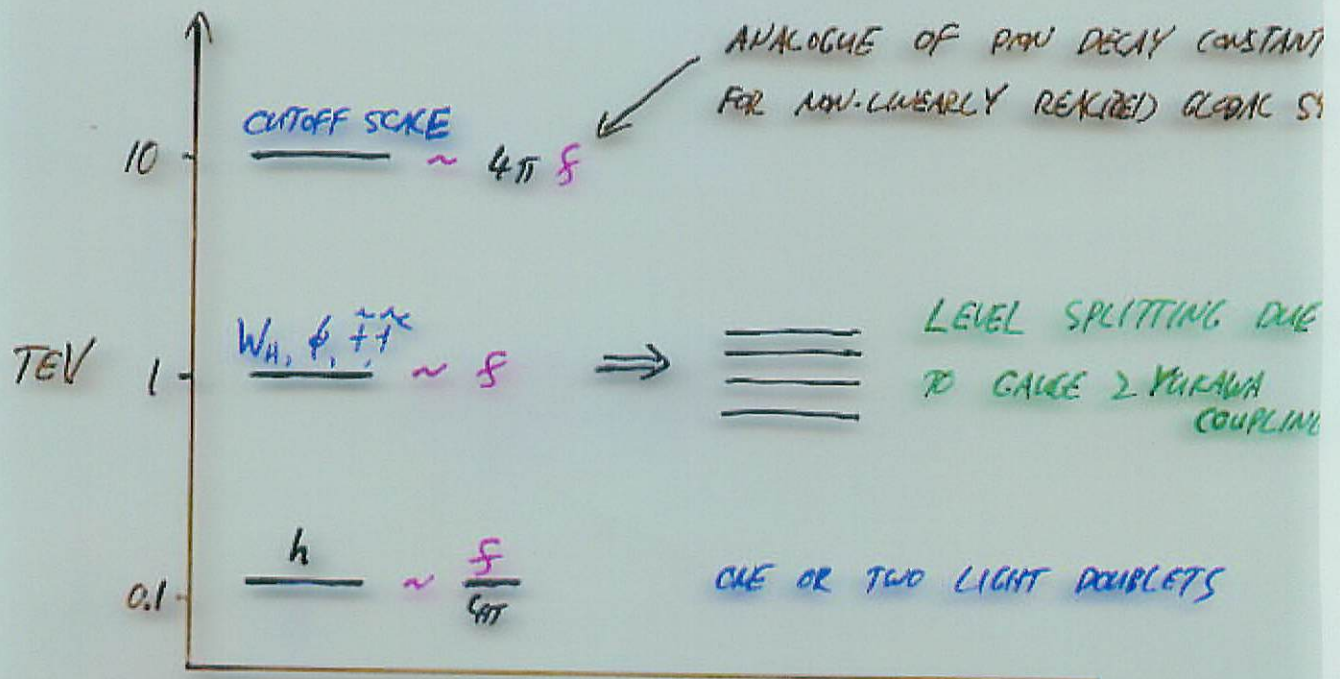 ANALOGUE OF PION DECAY CONSTANT
FOR NON-LINEARLY REALIZED GLOBAL SY
CUTOFF SCALE
10 ~ 4π f
LEVEL SPLITTING DUE
TO GAUGE & YUKAWA
COUPLING
W_H, φ, t̃ t̃ᶜ
TEV 1 ~ f ⇒
h
0.1 ~ f/4π
ONE OR TWO LIGHT DOUBLETS